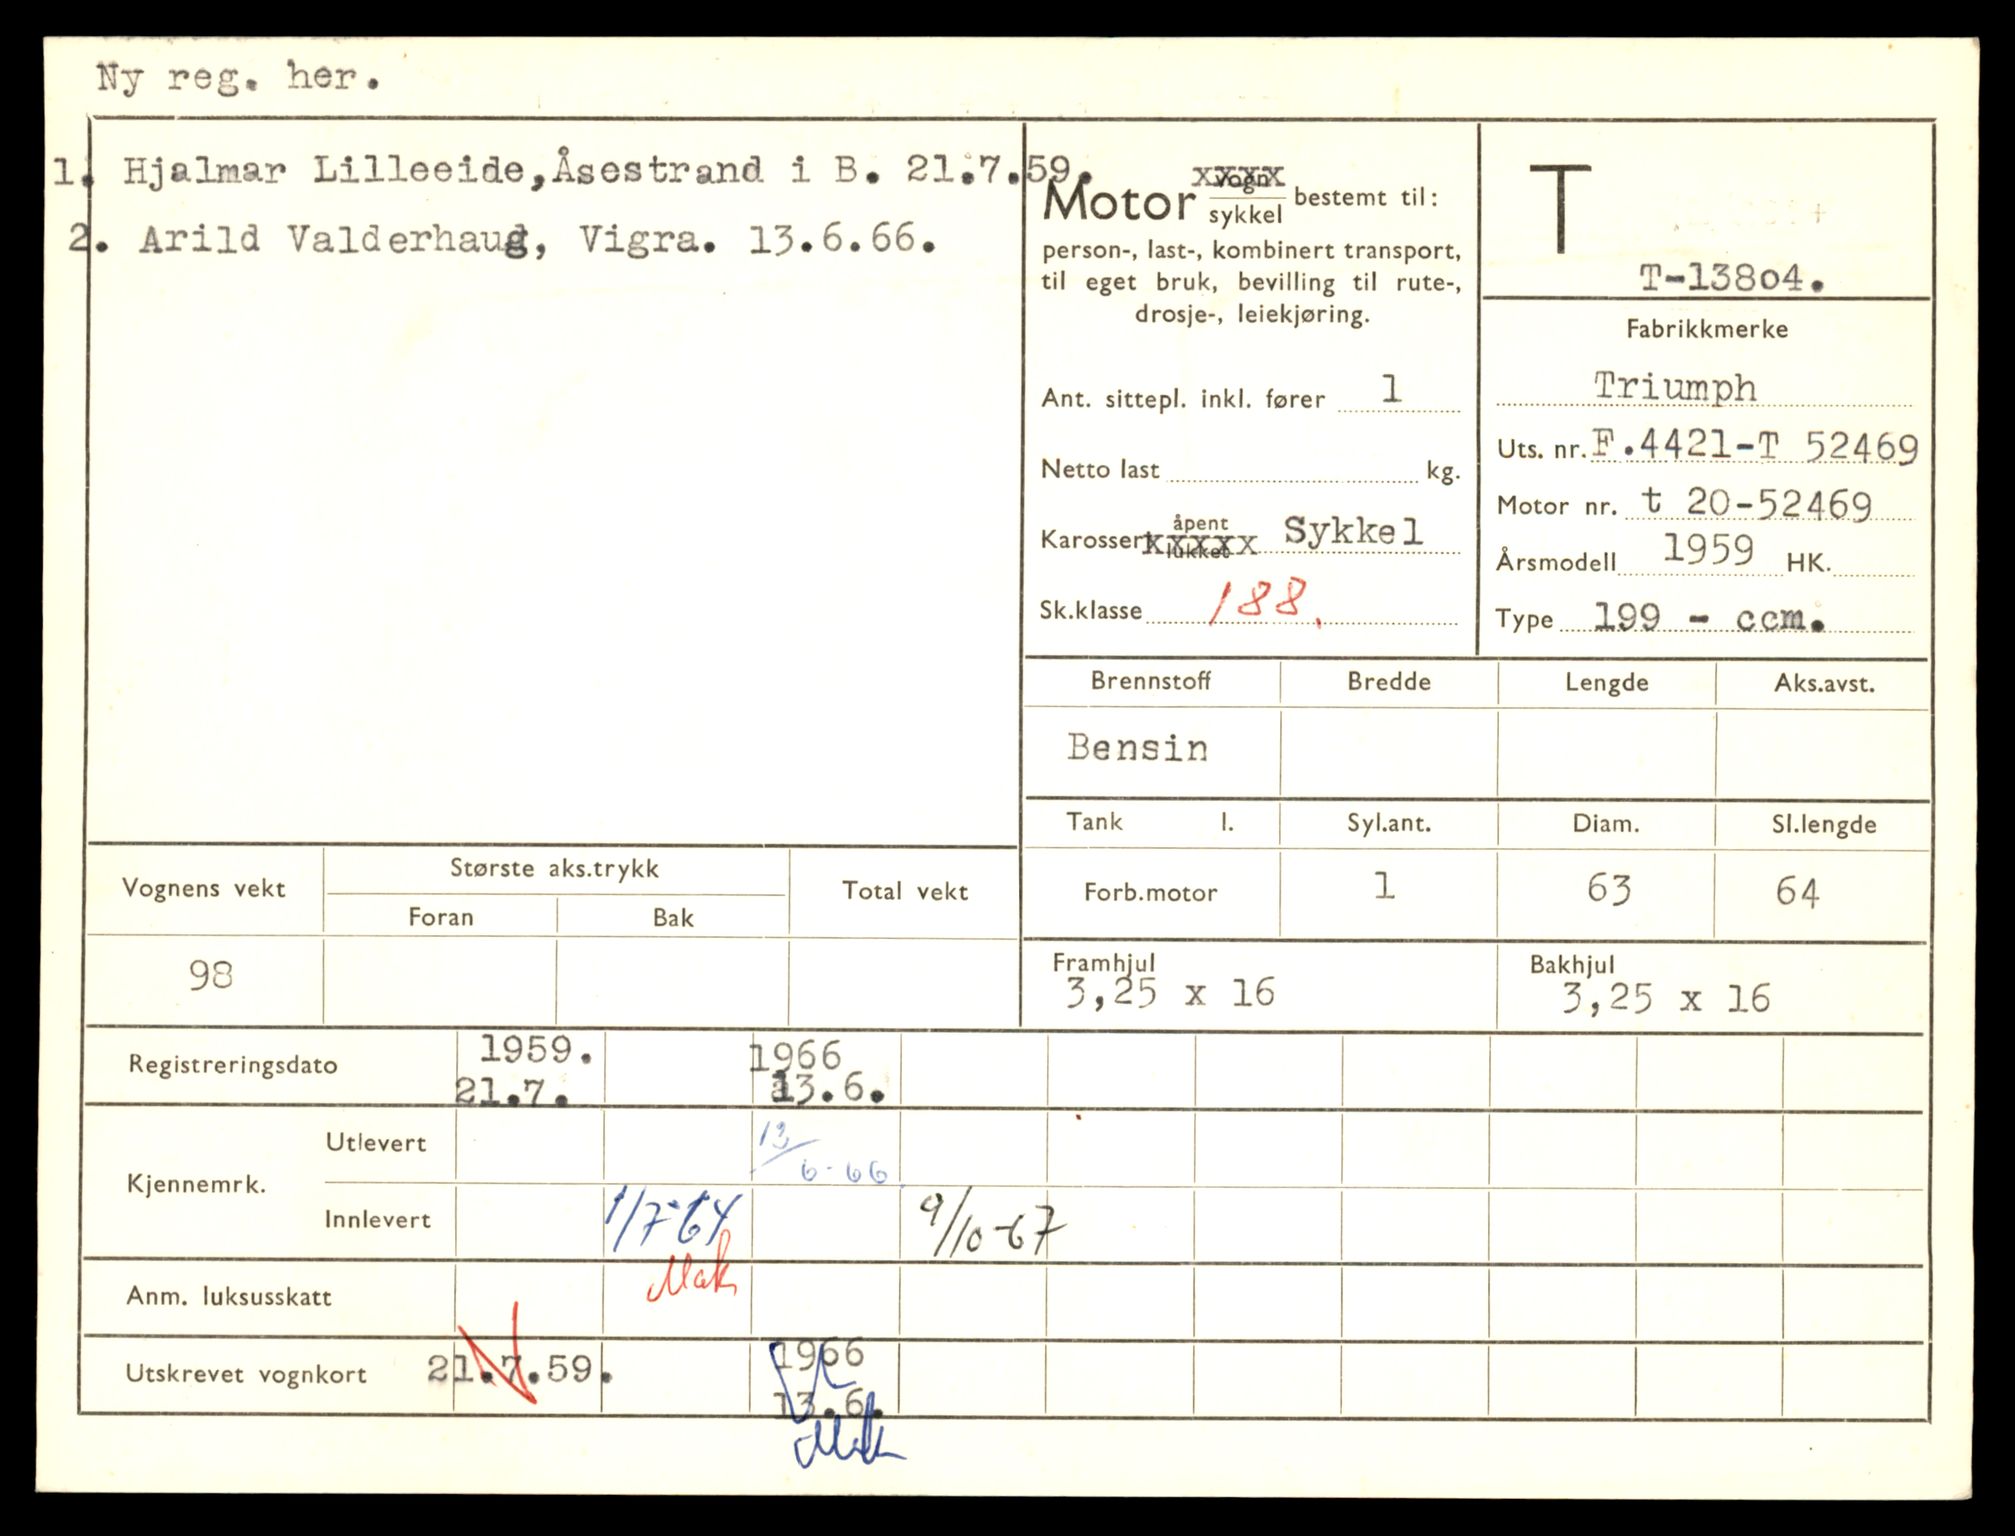 Ny reg. her.
1. Hjalmar Lilleeide,Åsestrand i B. 21.7.59.
2. Arild Valderhaug, Vigra. 13.6.66.
Motor vogn/sykkel bestemt til:
xxxx
person-, last-, kombinert transport,
til eget bruk, bevilling til rute-,
drosje-, leiekjøring.
Ant. sittepl. inkl. fører 1
Netto last kg.
Karosseri åpent/lukket xxxxx Sykkel
Sk.klasse 188.
T
T-13804.
Fabrikkmerke
Triumph
Uts. nr. F.4421-T 52469
Motor nr. t 20-52469
Årsmodell 1959 HK.
Type 199 - ccm.
Brennstoff Bredde Lengde Aks.avst.
Bensin
Tank l. Syl.ant. Diam. Sl.lengde
Forb.motor 1 63 64
Framhjul Bakhjul
3,25 x 16 3,25 x 16
Vognens vekt Største aks.trykk Total vekt
Foran Bak
98
Registreringsdato 1959. 1966
21.7. 13.6.
Kjennemrk. Utlevert 13/6-66.
Innlevert 1/7-64 9/10-67
Mak
Anm. luksusskatt
Utskrevet vognkort 21.7.59. 1966
13.6.
Mak